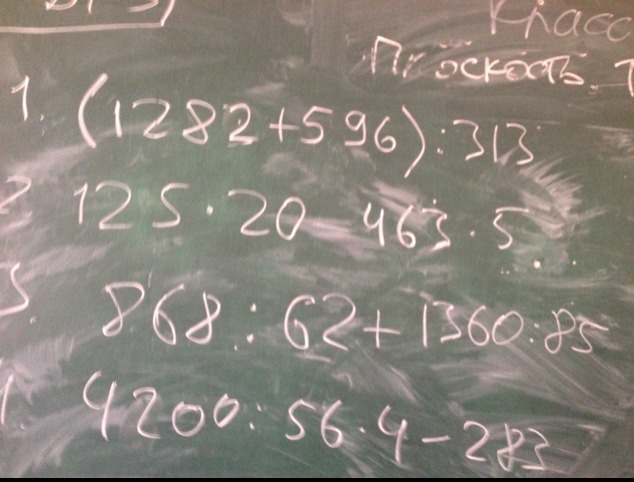 Класс
Плоскость. 
1. (1282+596):313
2. 125·20 463·5
3. 868:62+1360:85
4200:56·4-283